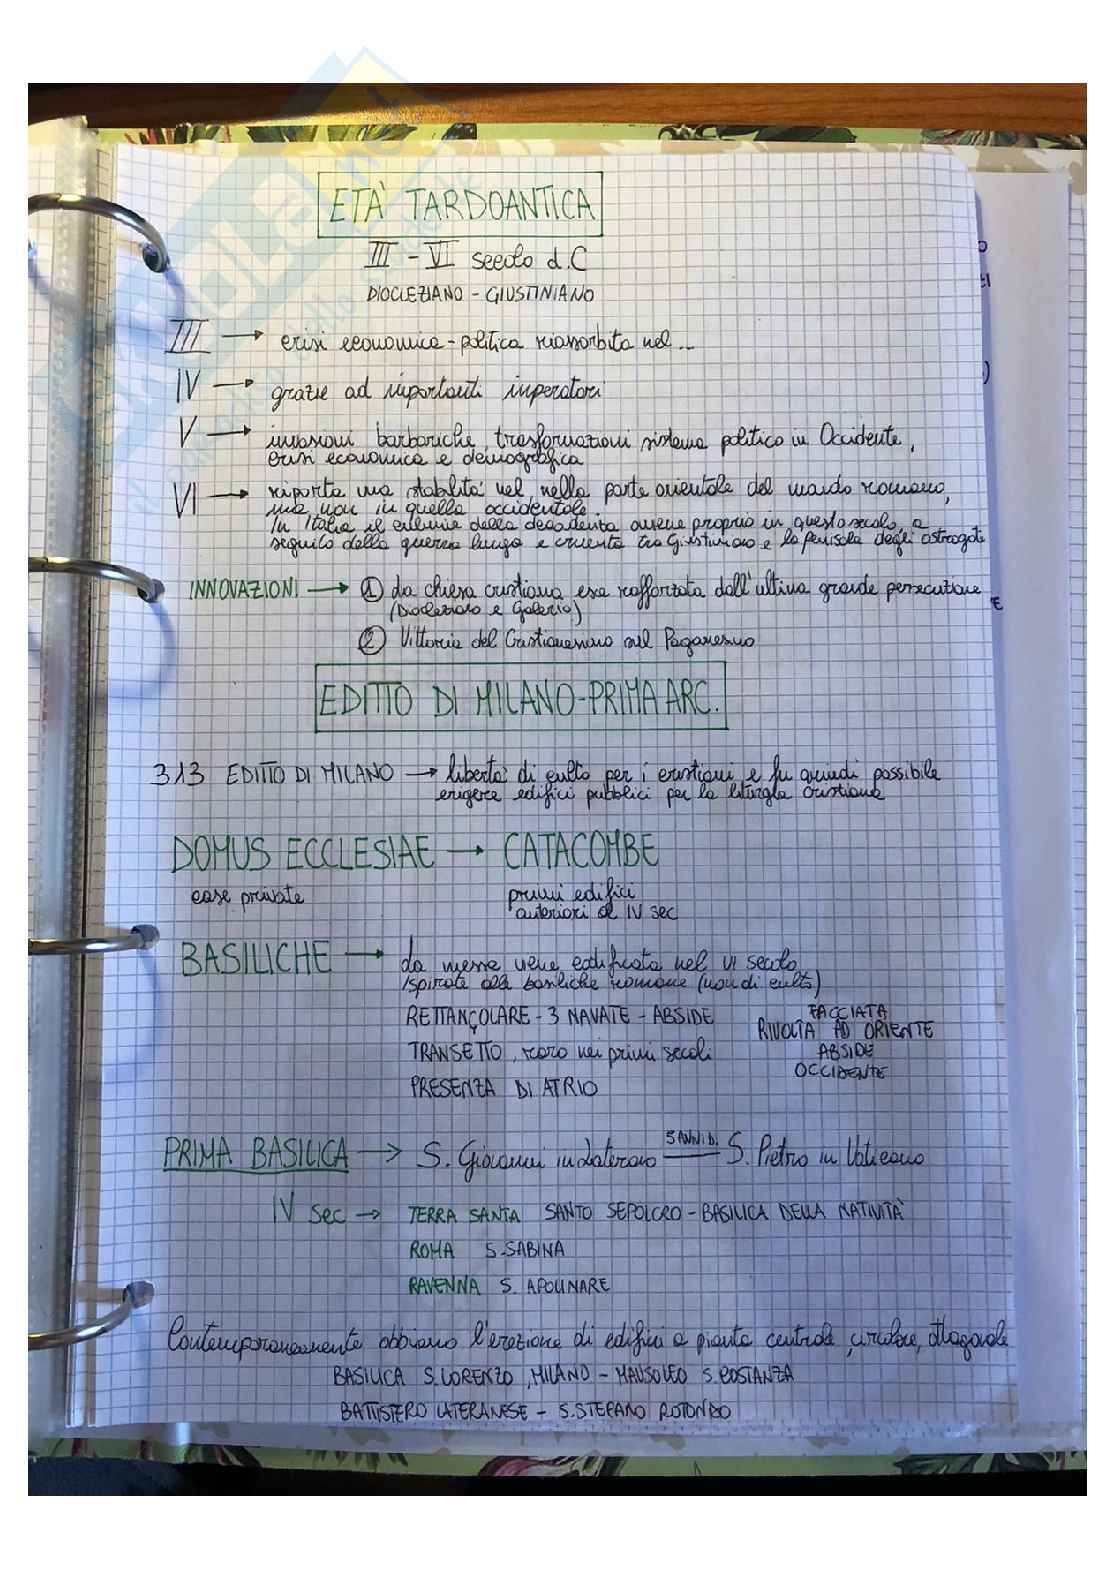 ETÀ TARDOANTICA
III - VI secolo d.C
DIOCLEZIANO - GIUSTINIANO
III → crisi economica-politica riassorbita nel...
IV → grazie ad importanti imperatori
V → invasioni barbariche, trasformazioni sistema politico in Occidente,
crisi economica e demografica
VI → riporta una stabilità nel, nella parte orientale del mondo romano,
ma non in quella occidentale.
In Italia il culmine della decadenza avviene proprio in questo secolo, a
seguito della guerra lunga e cruenta tra Giustiniano e la penisola degli ostrogoti
INNOVAZIONI → ① la chiesa cristiana era rafforzata dall'ultima grande persecuzione
(Diocleziano e Galerio)
② Vittoria del Cristianesimo nel Paganesimo
EDITTO DI MILANO-PRIMA ARC.
313 EDITTO DI MILANO → libertà di culto per i cristiani, e fu quindi possibile
erigere edifici pubblici per la liturgia cristiana
DOMUS ECCLESIAE → CATACOMBE
case private primi edifici
anteriori al IV sec
BASILICHE → la messa viene edificata nel VI secolo
Ispirate alle basiliche romane (non di culto)
RETTANGOLARE - 3 NAVATE - ABSIDE
TRANSETTO, raro nei primi secoli
PRESENZA DI ATRIO
FACCIATA
RIVOLTA AD ORIENTE
ABSIDE
OCCIDENTE
PRIMA BASILICA → S. Giovanni in Laterano 5 ANNI D. S. Pietro in Vaticano
IV sec → TERRA SANTA SANTO SEPOLCRO - BASILICA DELLA NATIVITÀ
ROMA S. SABINA
RAVENNA S. APOLLINARE
Contemporaneamente abbiamo l'erezione di edifici a pianta centrale, circolare, ottagonale
BASILICA S. LORENZO, MILANO - MAUSOLEO S. COSTANZA
BATTISTERO LATERANESE - S. STEFANO ROTONDO